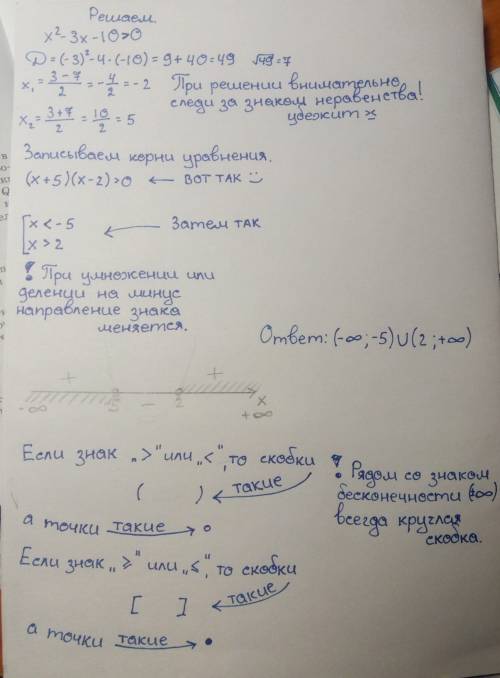 Решаем.
x²-3x-10>0
D=(-3)²-4·(-10)=9+40=49 √49=7
x₁=(3-7)/2=-4/2=-2
При решении внимательно
следи за знаком неравенства!
убежит
x₂=(3+7)/2=10/2=5
Записываем корни уравнения.
(x+5)(x-2)>0 ← вот так
[x<-5
[x>2
← Затем так
! При умножении или
деленци на минус
направление знака
меняется.
Ответ: (-∞;-5)∪(2;+∞)
+ - +
-∞ 5 2 x
+∞
Если знак „>" или „<", то скобки
( ) ← такие
а точки такие → ∘
! Рядом со знаком
бесконечности (±∞)
всегда круглая
скобка.
Если знак „≥" или „≤", то скобки
[ ] ← такие
а точки такие → •